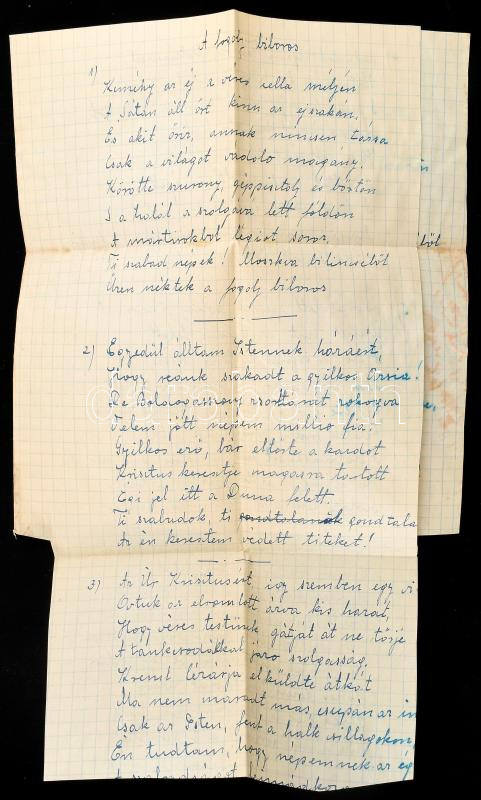 A fogoly biboros
1)
Kemény az éj a véres cella mélyén
A Sátán áll őrt kinn az éjszakán.
És akit őriz, annak nincsen társa
Csak a világot vádoló magány.
Körötte szurony, géppisztoly és börtön
S a halál a szolgává lett földön
A mártirokból légiót soroz,
Ti szabad népek! Moszkva bilincséből
Üzen néktek a fogoly biboros
2) Egyedül álltam Istennek házáért,
Hogy reánk szakadt a gyilkos Ázsia!
De Boldogasszony zsoltárát zokogva
Velem jött népem millió fia;
Gyilkos erő, bár eltörte a kardot
Krisztus keresztje magasra tartott
Égi jel itt a Duna felett.
Ti szabadok, ti gondtala
Az én keresztem védett titeket!
3) Az Úr Krisztusért, igy szemben egy vi
Ovtuk az elvomlott árva kis hazát,
Hogy véres testünk gátját át ne törje
A tankcsodákkal járó szolgaság,
Kreml cézárja elküldte átkát
Ma nem maradt más, csupán az in
Csak az Isten, fent a halk csillagokon,
Én tudtam, hogy népemnek az ég